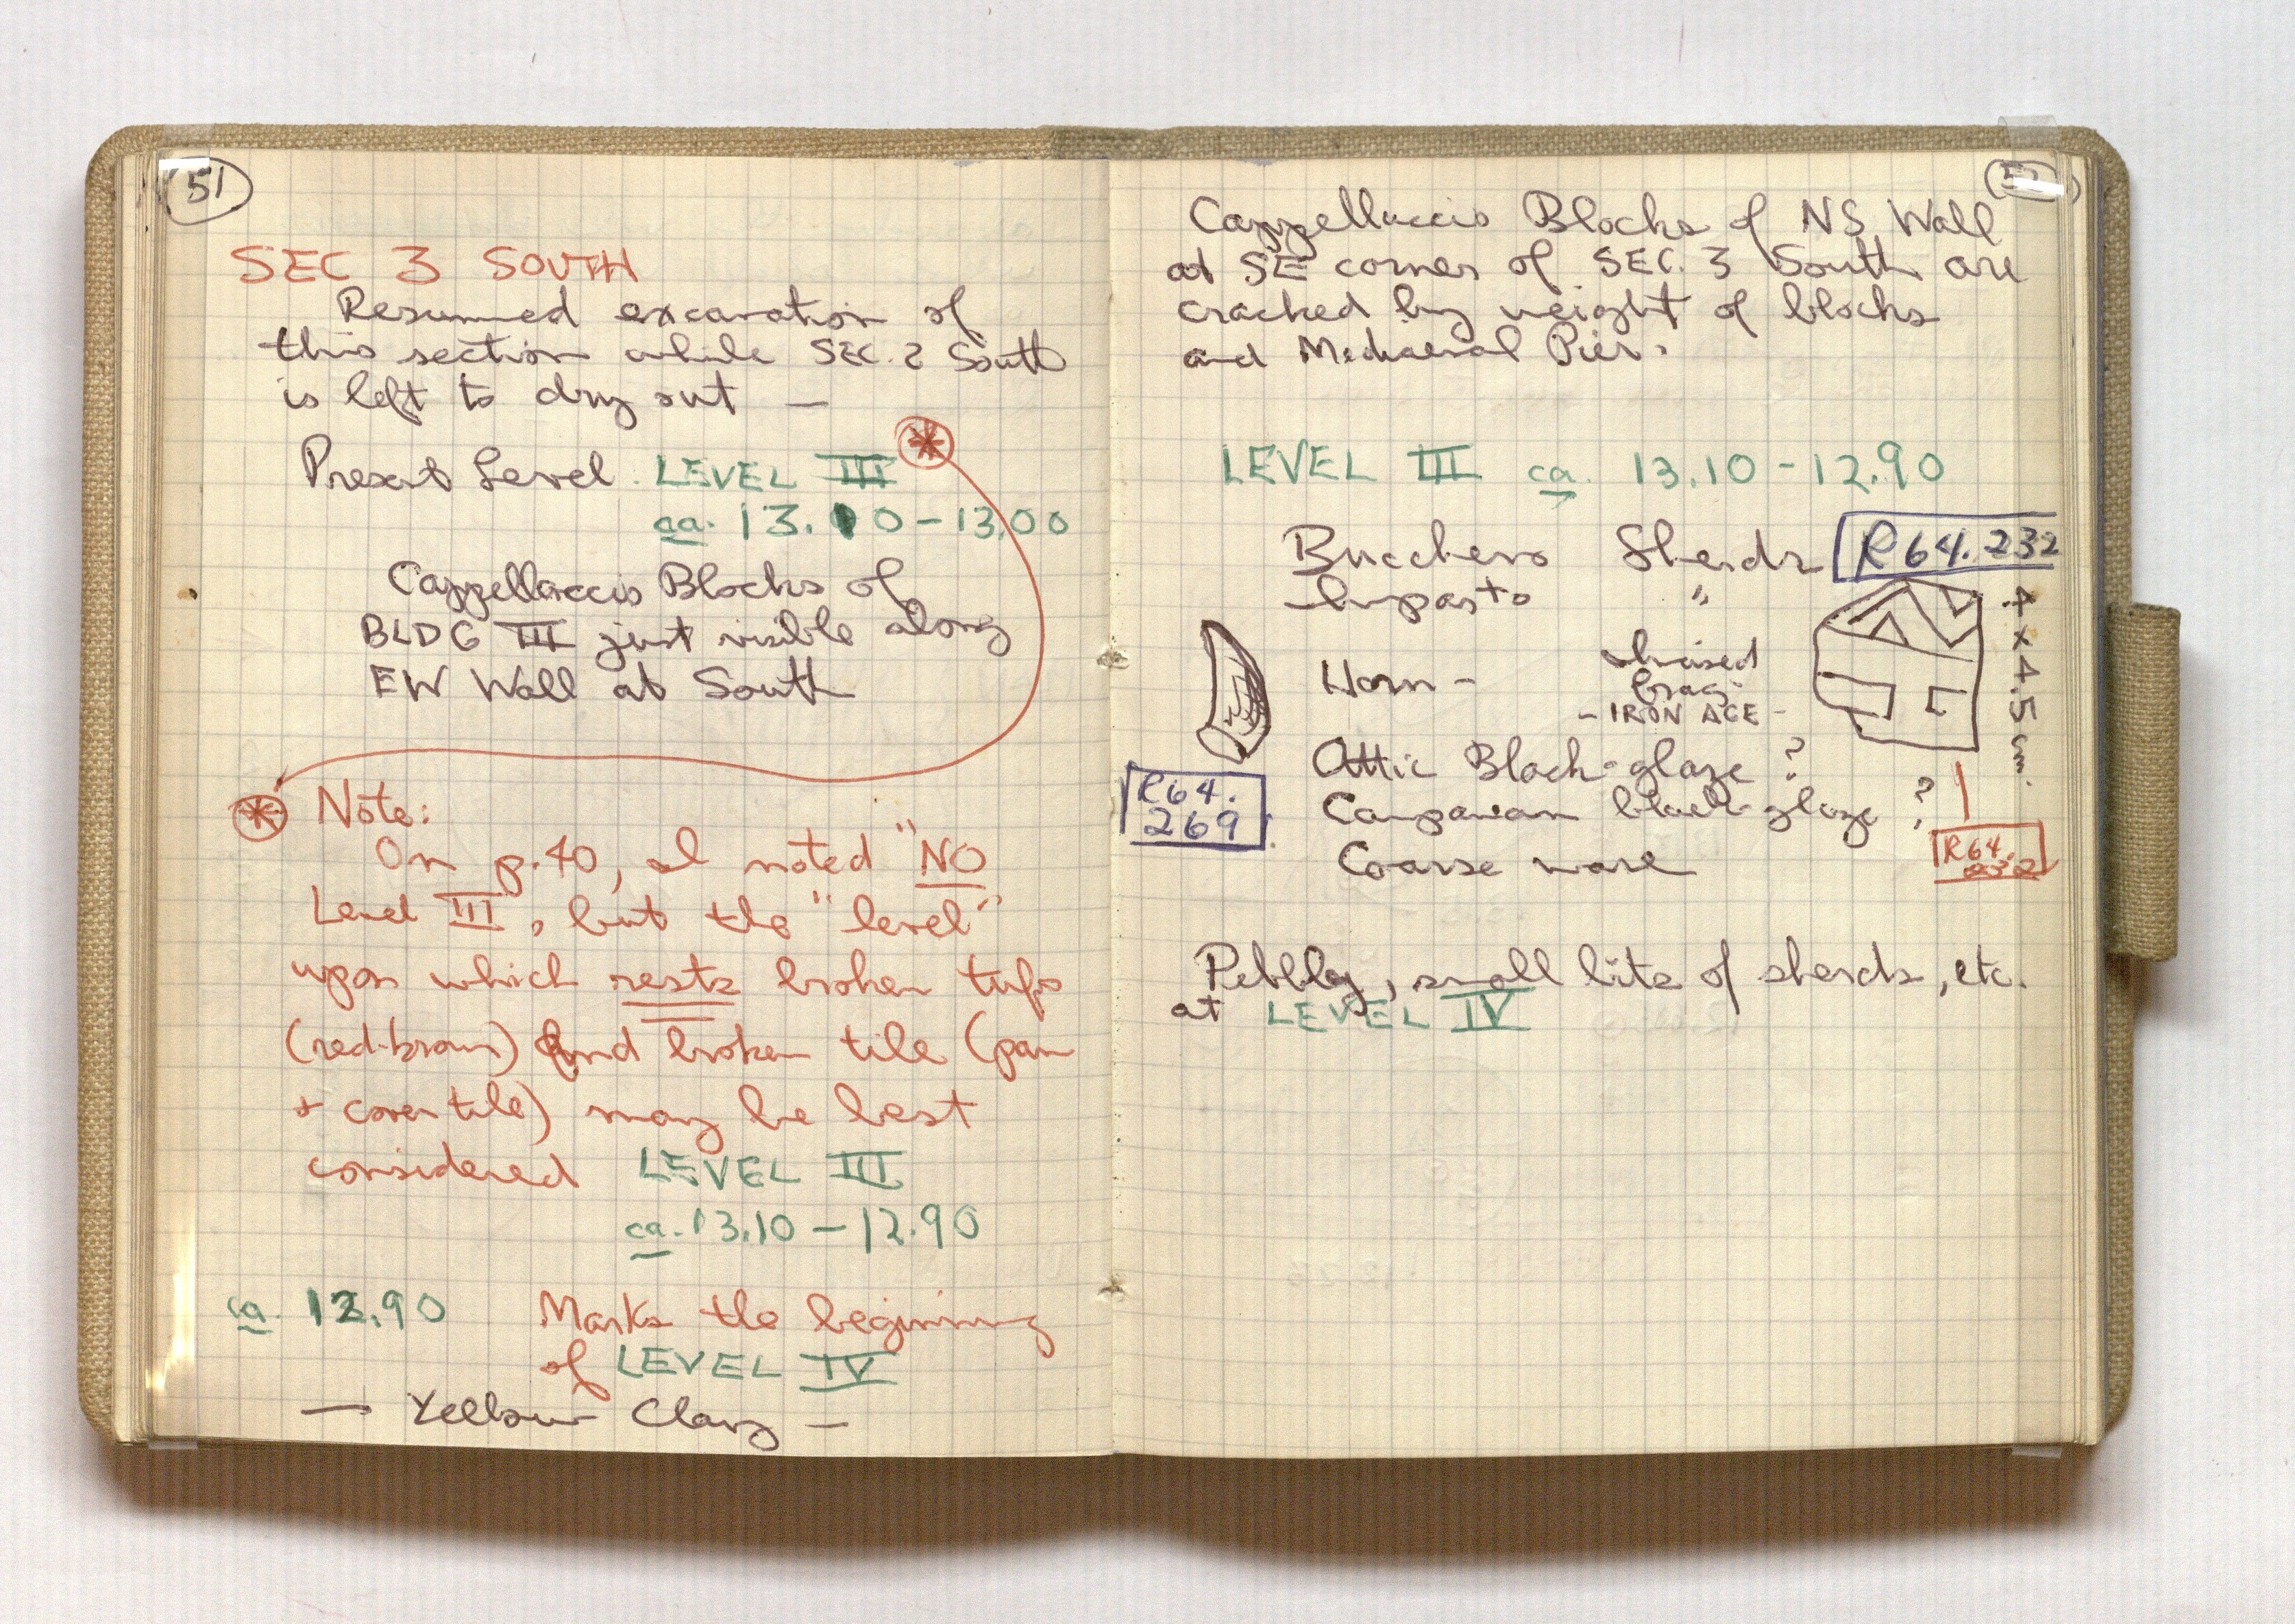 51
SEC 3 SOUTH
Resumed excavation of
this section while SEC. 2 South
is left to dry out —
Present Level. LEVEL III
ca. 13.10-13.00
Cappellaccio Blocks of
BLDG III just visible along
EW Wall at South
Note:
On p.40, I noted "NO
Level III", but the "level"
upon which rests broken tufo
(red-brown) and broken tile (pan
+ cover tile) may be best
considered LEVEL III
ca. 13.10 - 12.90
ca. 12.90 Marks the beginning
of LEVEL IV
— Yellow Clay —
Cappellaccio Blocks of NS Wall
at SE corner of SEC. 3 South are
cracked by weight of blocks
and Mediaeval Pier.
LEVEL III ca. 13.10-12.90
Bucchero Sherds R64.232
Impasto "
Horn - incised
frag.
- IRON AGE -
4 x 4.5 cm.
Attic Black-glaze ?
Campanian black-glaze ?
Coarse ware
R64.
269
R64.
232
Pebbly, small bits of sherds, etc.
at LEVEL IV